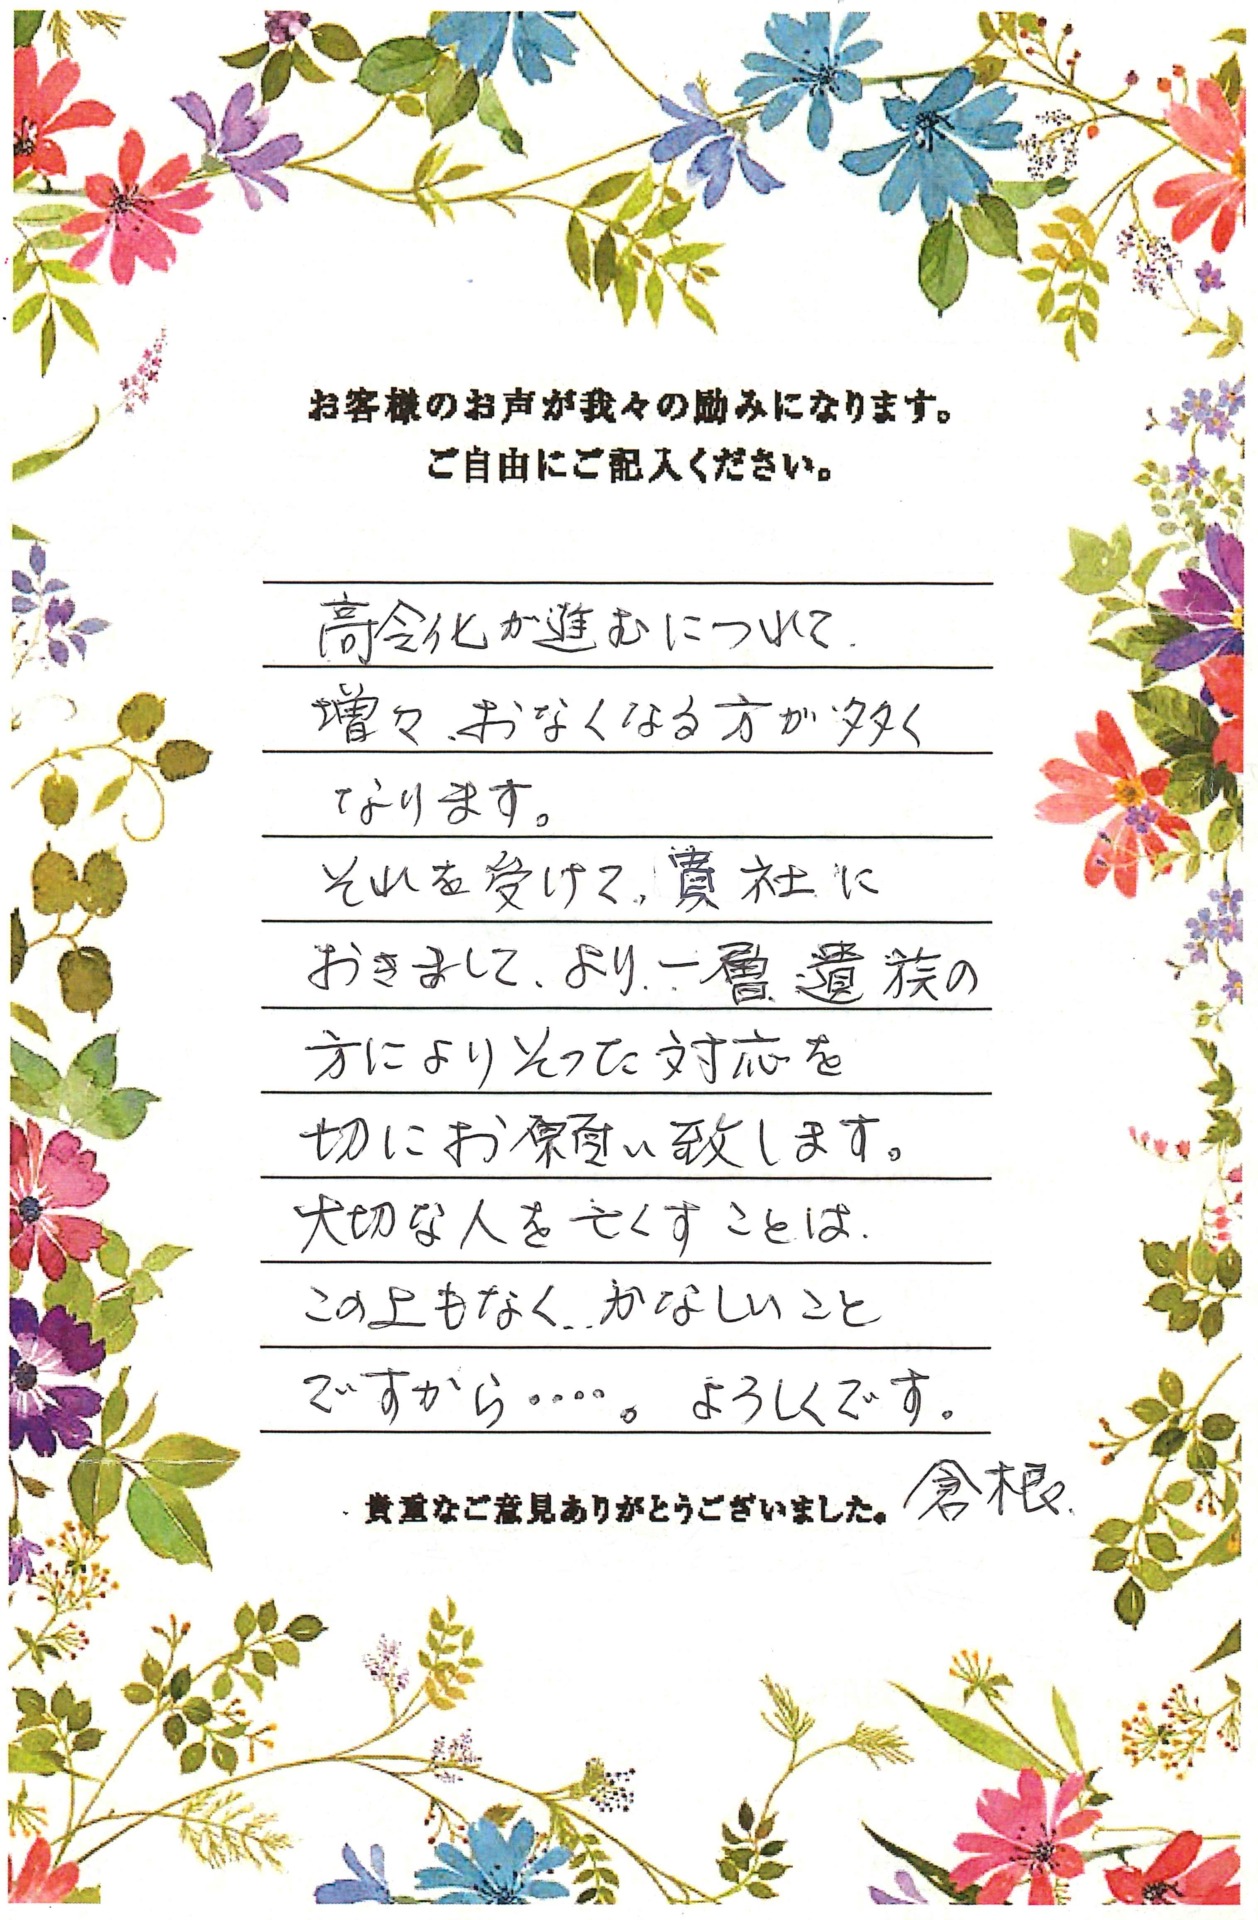 お客様のお声が我々の励みになります。
ご自由にご記入ください。
高令化が進むにつれて、
増々、おなくなる方が多く
なります。
それを受けて、貴社に
おきまして、より、一層、遺族の
方によりそった対応を
切にお願い致します。
大切な人を亡くすことは、
この上もなく、かなしいこと
ですから・・・・。よろしくです。
貴重なご意見ありがとうございました。
倉根